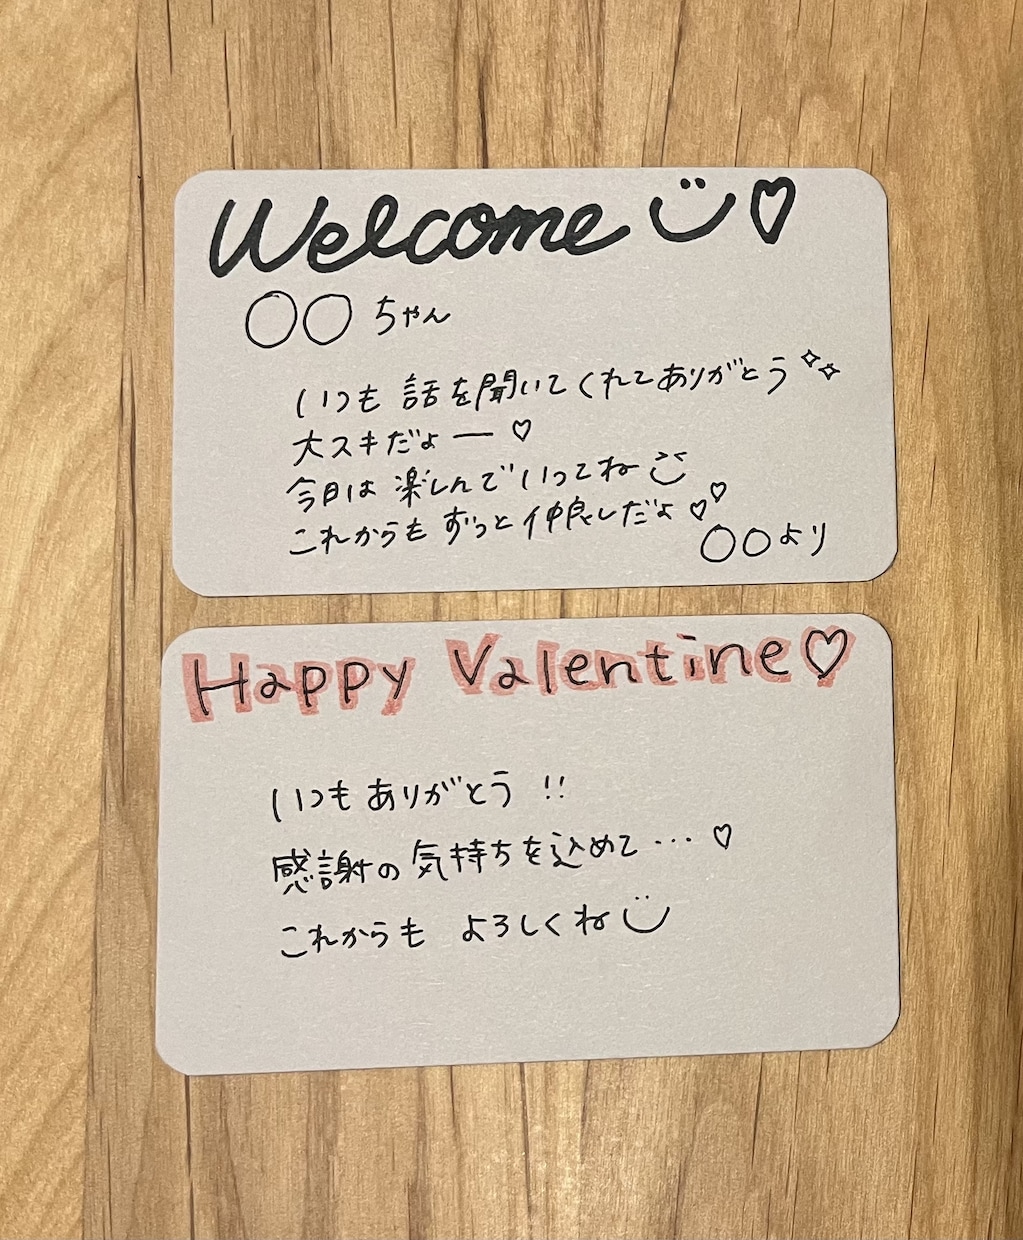 Welcome ♡
○○ちゃん
いつも 話を聞いてくれてありがとう
大スキだよー ♡
今日は 楽しんでいってね
これからも ずっと仲良しだよ ♡♡
○○より
Happy Valentine♡
いつも ありがとう !!
感謝の気持ちを込めて… ♡
これからも よろしくね